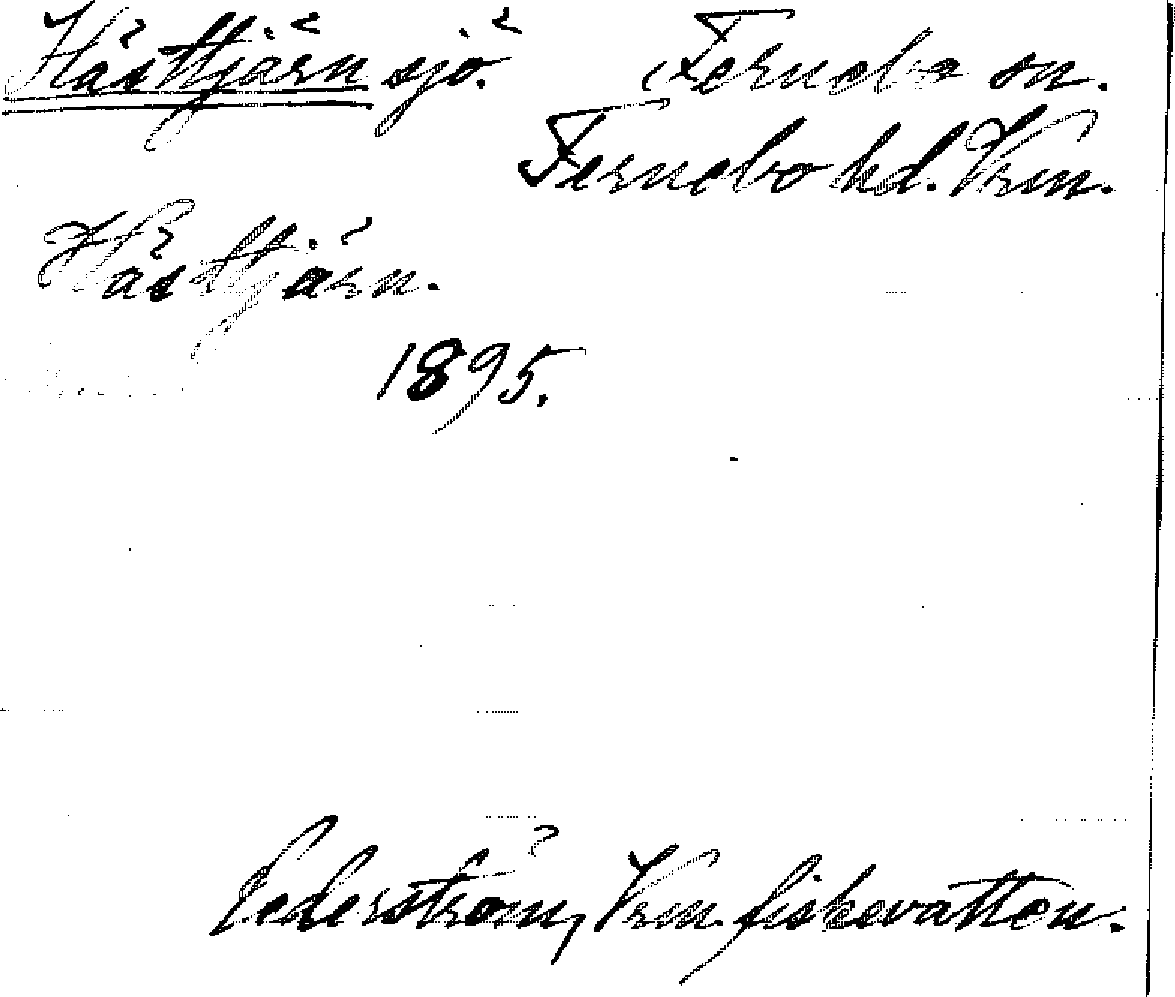 Hästtjärn sjö. Fernebo sn.
Fernebo hd. Vrm.
Hästtjärn.
1895.
Cederström, Vrm. fiskevatten.